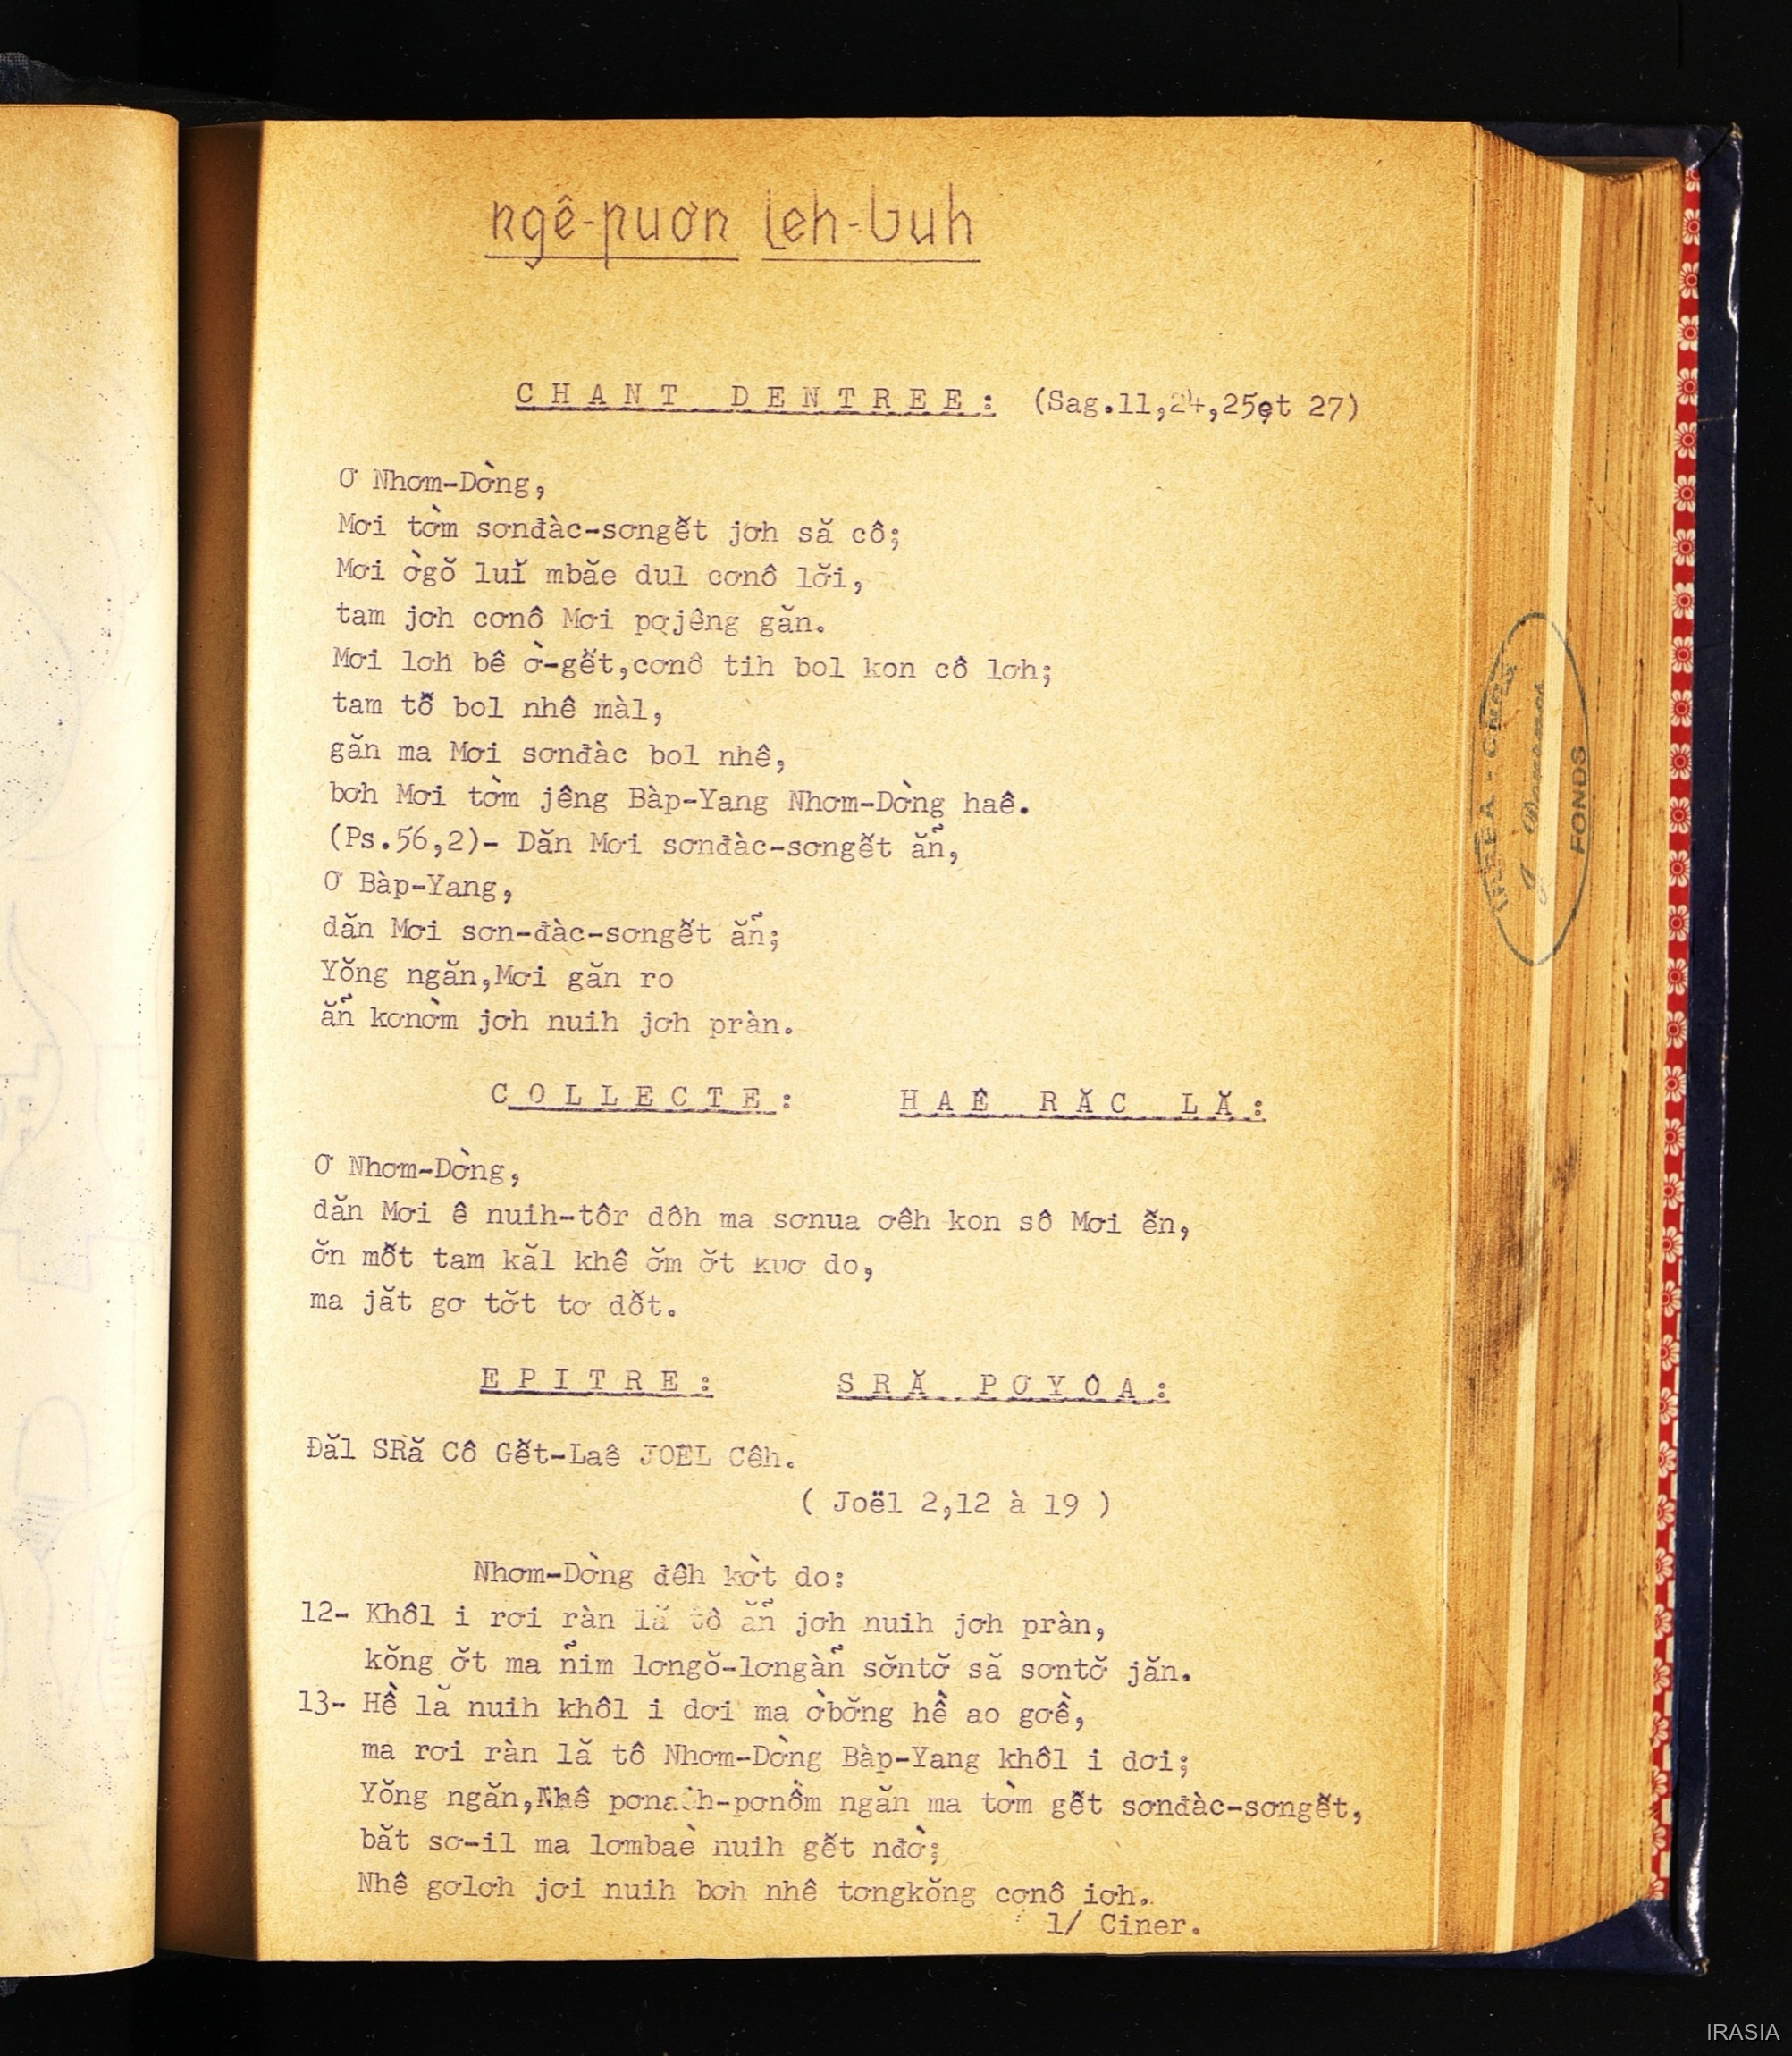 ngê-puơn leh-buh
CHANT DENTREE: (Sag.11,24,25et 27)
Ơ Nhơm-Dờng,
Mơi tờm sơnđàc-sơngết jơh să cô;
Mơi ờgŏ luĭ mbăe dul cơnô lơ̆i,
tam jơh cơnô Mơi pơjêng găn.
Mơi lơh bê ờ-gết,cơnô tih bol kon cô lơh;
tam tô̆ bol nhê màl,
găn ma Mơi sơnđàc bol nhê,
bơh Mơi tờm jêng Bàp-Yang Nhơm-Dờng haê.
(Ps.56,2)- Dăn Mơi sơnđàc-sơngết ăñ,
Ơ Bàp-Yang,
dăn Mơi sơn-đàc-sơngết ăñ;
Yŏng ngăn,Mơi găn ro
ăñ kơnờm jơh nuih jơh pràn.
COLLECTE: HAÊ RĂC LĂ:
Ơ Nhơm-Dờng,
dăn Mơi ê nuih-tôr dôh ma sơnua ơêh kon sô Mơi ê̆n,
ơ̆n mô̆t tam kăl khê ơ̆m ơ̆t kuơ do,
ma jăt gơ tơ̆t tơ dô̆t.
EPITRE: SRĂ PƠYÔA:
Đăl SRă Cô Gết-Laê JOËL Cêh.
( Joël 2,12 à 19 )
Nhơm-Dờng đêh kờt do:
12- Khôl i rơi ràn lă tô ăñ jơh nuih jơh pràn,
kŏng ơ̆t ma ñim lơngŏ-lơngàñ sơ̆ntơ̆ să sơntơ̆ jăn.
13- Hề lă nuih khôl i dơi ma ờbơ̆ng hề ao gơề,
ma rơi ràn lă tô Nhơm-Dờng Bàp-Yang khôl i dơi;
Yŏng ngăn,Nhê pơnồm ngăn ma tờm gết sơnđàc-sơngết,
băt sơ-il ma lơmbaè nuih gết nđờ;
Nhê gơlơh jơi nuih bơh nhê tơngkŏng cơnô iơh.
1/ Ciner.
FONDS
IRASIA